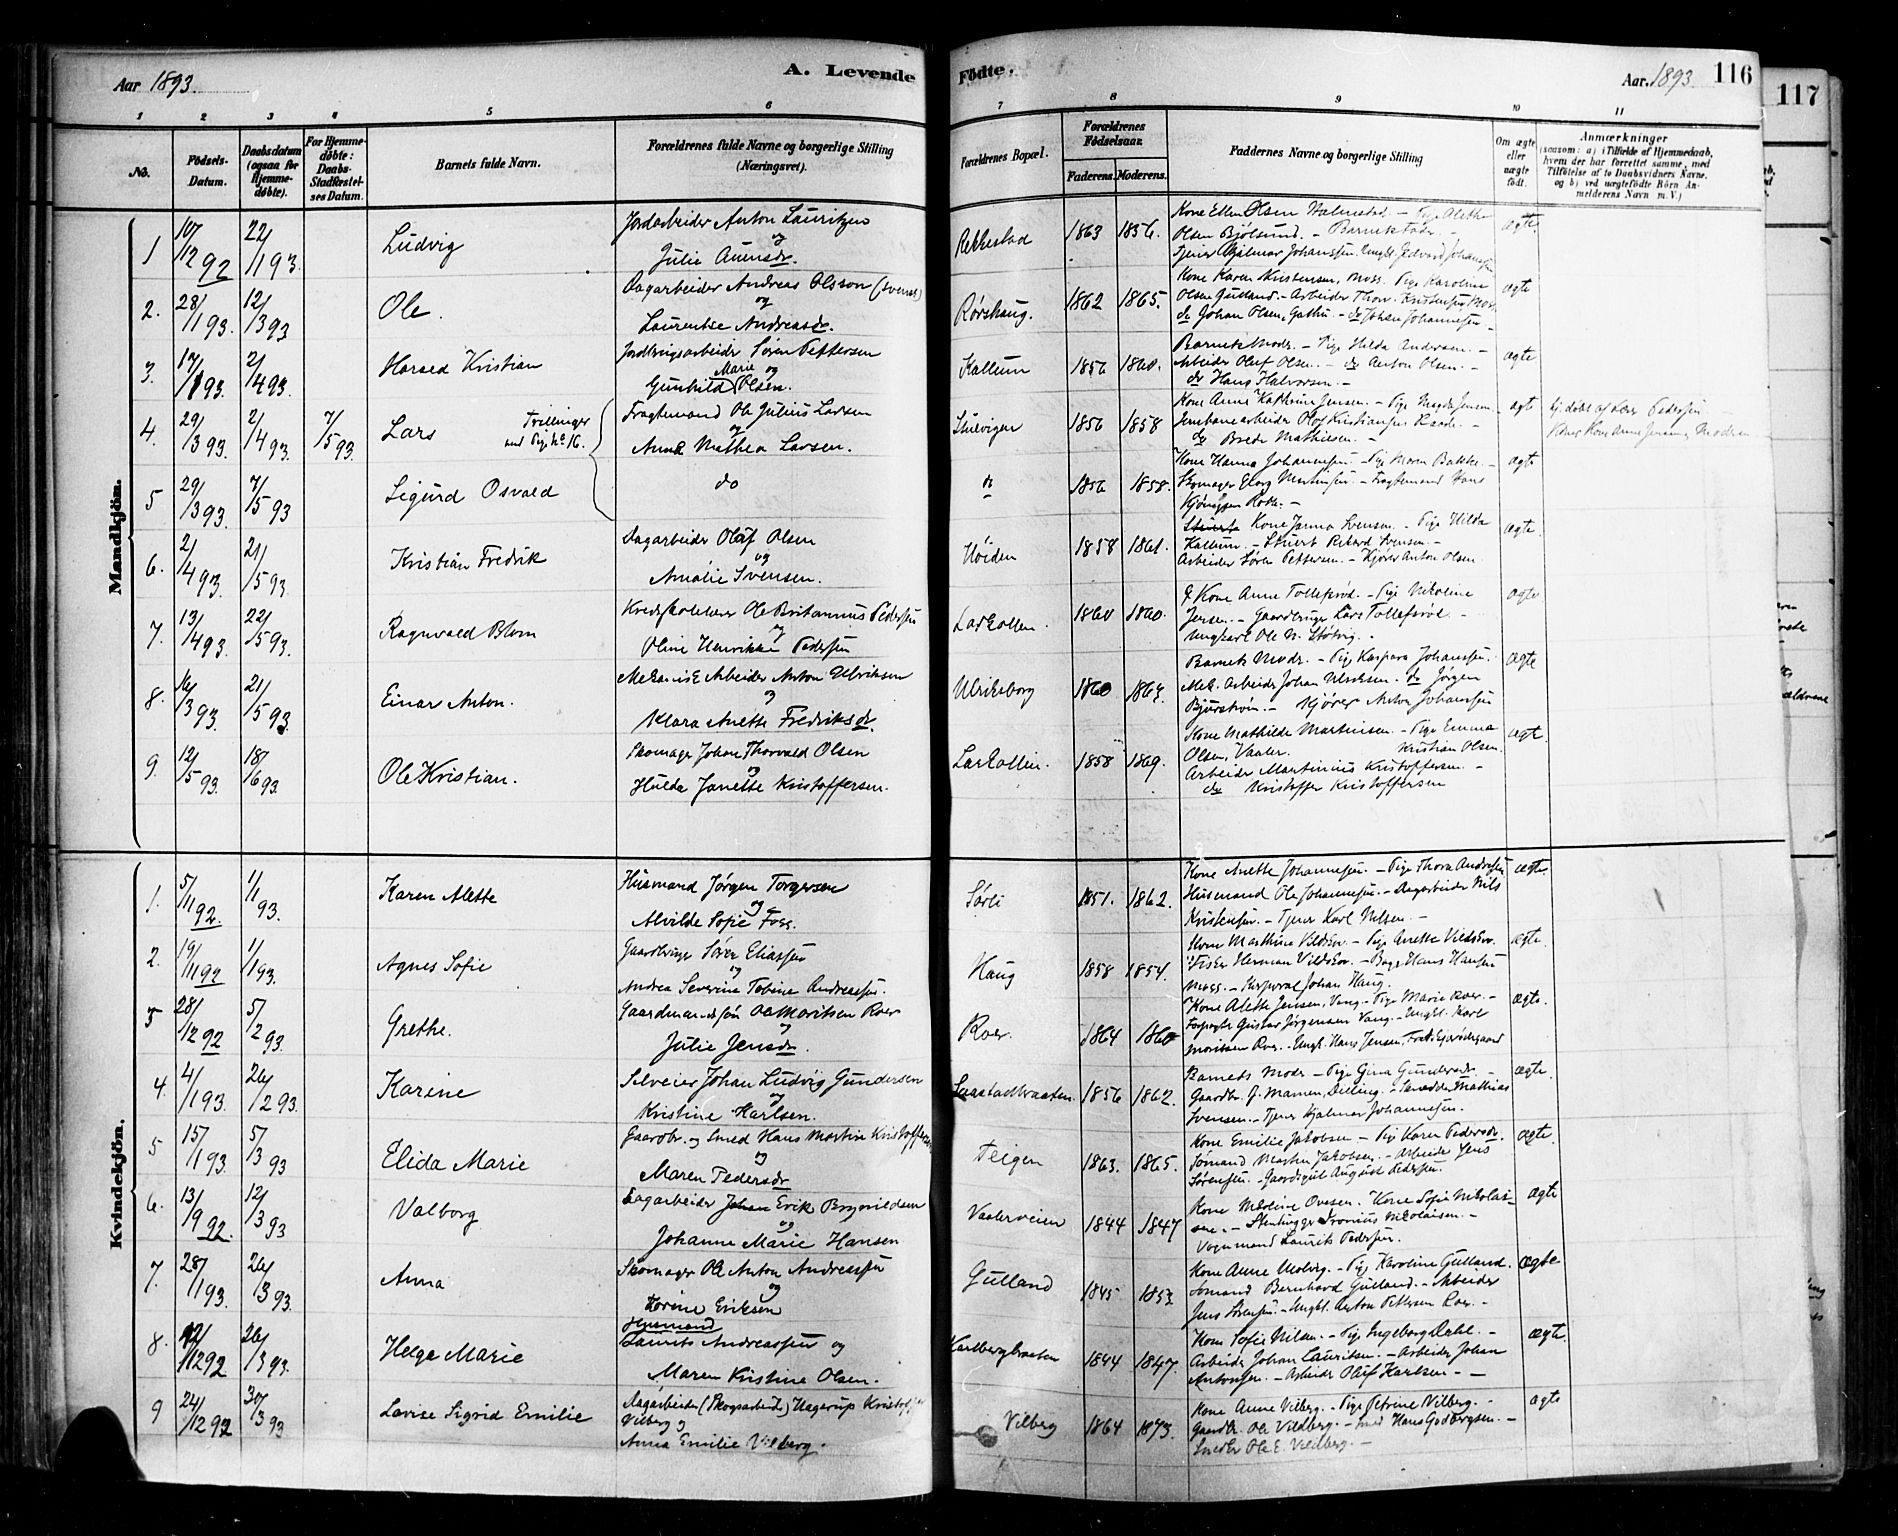 Aar 1893.
A. Levende Fødte.
Aar. 1893
116
117
1 2 3 4 5 6 7 8 9 10 11
No.
Fødsels-
Datum.
Daabsdatum
(ogsaa for
Hjemme-
døbte).
For Hjemme-
døbte:
Daabs-
Stadfæstel-
ses Datum.
Barnets fulde Navn.
Forældrenes fulde Navne og borgerlige Stilling
(Næringsvei).
Forældrenes Bopæl.
Forældrenes
Fødselsaar.
Faderens. Moderens.
Faddernes Navne og borgerlige Stilling
Om ægte
eller
uægte
født.
Anmærkninger
(saasom: a) i Tilfælde af Hjemmedaab,
hvem der har forrettet samme, med
Tilføielse af to Daabsvidners Navne,
og b) ved uægtefødte Börn An-
melderens Navn m. V.)
Mandkjön.
1 10/12 92 22/1 93. Ludvig
Jordarbeider Anton Lauritzen
og
Julie
Rekkestad 1863 1856.
Kone Ellen Olsen Halmstad. – Pige Alethe
Olsen Bjølsund. – Barnets Fader. –
Tjener Hjalmar Johanssen. Ungk. Edvard Johanssen
ægte
2. 28/1 93. 12/3 93 Ole.
Dagarbeider Andreas Olsson (svensk)
og
Laurentse Andreasdr.
Rørshaug. 1862 1865.
Kone Karen Kristensen, Moss. Pige Karoline
Olsen Gulland. – Arbeider Thorv. Kristensen Moss
do Johan Olsen, – do Johan Johannesen –
ægte
3. 17/1 93. 2/4 93. Harald Kristian
Søren Pettersen
og
Gunhild Marie Olsen.
Kallum 1856 1860.
Barnets Modr. – Pige Hilda Andersen. –
Arbeider Olaf Olsen. – do Anton Olsen. –
do Hans Halvorsen. –
ægte
4. 29/3 93. 2/4 93. 7/5 93. Lars
Tvillinger
Fragtemand Ole Julius Larsen
og
Anne Mathea Larsen.
1856 1858
Kone Anne Kathrine Jensen. – Pige Magda Jensen –
Jernbanearbeider Olaf Kristiansen –
do Brede Mathisen. –
ægte
5 29/3 93. 7/5 93 Sigurd Osvald
do
do 1856 1858.
Kone Hanna Johannesen – Pige Maren Bakke. –
Skomager Georg Martinsen. – Fragtemand Hans
ægte
6. 2/4 93. 21/5 93. Kristian Fredrik
Dagarbeider Olaf Olsen
og
Amalie Svensen.
Høiden 1858 1861.
Kone Svensen. – Pige Hilda
Kallum. – Stuert Rikard Svensen –
Arbeider Søren Pettersen. – Kjører Anton Olsen.
ægte
7. 13/4 93. 22/5 93. Ragnvald Blom
Ole Britannius Pedersen
og
Oline Henrikke Pedersen
Larkollen. 1860 1860.
Kone Anne Tollefsrød. – Pige Nikoline
Jensen. – Gaardbruger Lars Tollefsrød. –
Ungkarl Ole N. Støtvig. –
ægte
8. 16/3 93. 21/5 93. Einar Anton.
Mekanisk Arbeider Anton Ulriksen
og
Klara Anette Fredriksdr.
Ulriksborg 1860 1867.
Barnets Modr. – Pige Kaspara Johanssen.
Mek. Arbeider Johan Ulriksen. do Jørgen
– Kjører Anton Johanssen
ægte
9. 12/5 93. 18/6 93. Ole Kristian.
Skomager Johan Thorvald Olsen
og
Hulda Janette Kristoffersen.
Larkollen. 1858 1869.
Kone Mathilde Martinisen. – Pige Emma
Olsen, Vaaler. Kristian Olsen.
Arbeider Martinius Kristoffersen. –
do Kristoffer Kristoffersen
ægte.
Kvindekjön.
1. 5/11 92. 1/1 93. Karen Alette
Husmand Jørgen Torgersen
og
Alvilde Sofie Foss.
Sørli 1851. 1862.
Kone Anette Johannesen. – Pige Thora Andresen
Husmand Ole Johannesen. – Dagarbeider Nils
Kristensen. – Tjener Karl Nilsen. –
ægte.
2. 19/11 92 1/1 93. Agnes Sofie
Gaardbruger Søren Eliassen
og
Andrea Severine Tobine Andreassen.
Haug 1858 1854.
Kone Mathine – Pige Anette
Fisker Herman – Hans Hansen
Moss. – Korporal Johan Haug.
ægte.
3 28/12 92 5/2 93. Grethe.
Gaardmandssøn Ole Moritsen Roer
og
Julie Jensdr.
Roer. 1864 1860
Kone Alette Jensen, Vang – Pige Marie Roer. –
Gustav Jørgensen Vang. – Ungk. Karl
Moritsen Roer. – Ungk. Hans Jensen,
ægte.
4 4/1 93. 26/2 93. Karine
Selveier Johan Ludvig Gundersen
og
Kristine Karlsen.
Saastadbraaten. 1856 1862.
Barnets Modr – Pige Gina Gundersdr. –
Gaardbr. J. Mamen, Dilling. – Skrædder Mathias
Svensen. – Tjener Hjalmar Johannesen.
ægte.
5 15/1 93. 5/3 93 Elida Marie
Gaardbr. og Smed Hans Martin Kristoffersen
og
Maren Pedersdr
Teigen 1863. 1865.
Kone Emilie Jakobsen – Pige Karen Pedersdr.
Sømand Martin Jakobsen. – Arbeider Jens
Sørensen. – August Pedersen.
ægte.
6. 13/9 92. 12/3 93 Valborg
Dagarbeider Johan Erik Brynildsen
og
Johanne Marie Hansen
Vaalerveien 1844 1847
Kone Nicoline Ovesen. – Kone Sofie Nikolai-
sen. – Nikolaisen. –
Vognmand Laurits Pedersen.
ægte
7. 28/1 93. 26/3 93. Anna
Skomager Ole Anton Andreassen
og
Karine Eriksen
Gulland 1845 1853
Kone Anne Moberg. – Pige Karoline Gulland.
Sømand Bernhard Gulland. – Arbeider
Jens Sørensen. – Ungk. Anton Pettersen Roer. –
ægte
8. 12/12 92 26/3 93. Helga Marie
Husmand
Laurits Andreassen og
Maren Kristine Olsen.
Karlbergbraaten 1844 1847.
Kone Sofie Nilsen. – Pige Ingeborg Dahl. –
Arbeider Johan Lauritsen. – Arbeider Johan
Antonsen. – Arbeider Olaf Karlsen – –
ægte.
9 24/12 92 30/3 93 Lovise Sigrid Emilie
Dagarbeider (Skogsarbeider) Hagerup
Vilberg og
Anna Emilie Vilberg.
Vilberg 1864 1873.
Kone Anne Vilberg. – Pige Petrine Vilberg. –
Gaardbr. Ole Vildberg. – Smed Hans –
Snedker Ole E. Vildberg. –
ægte